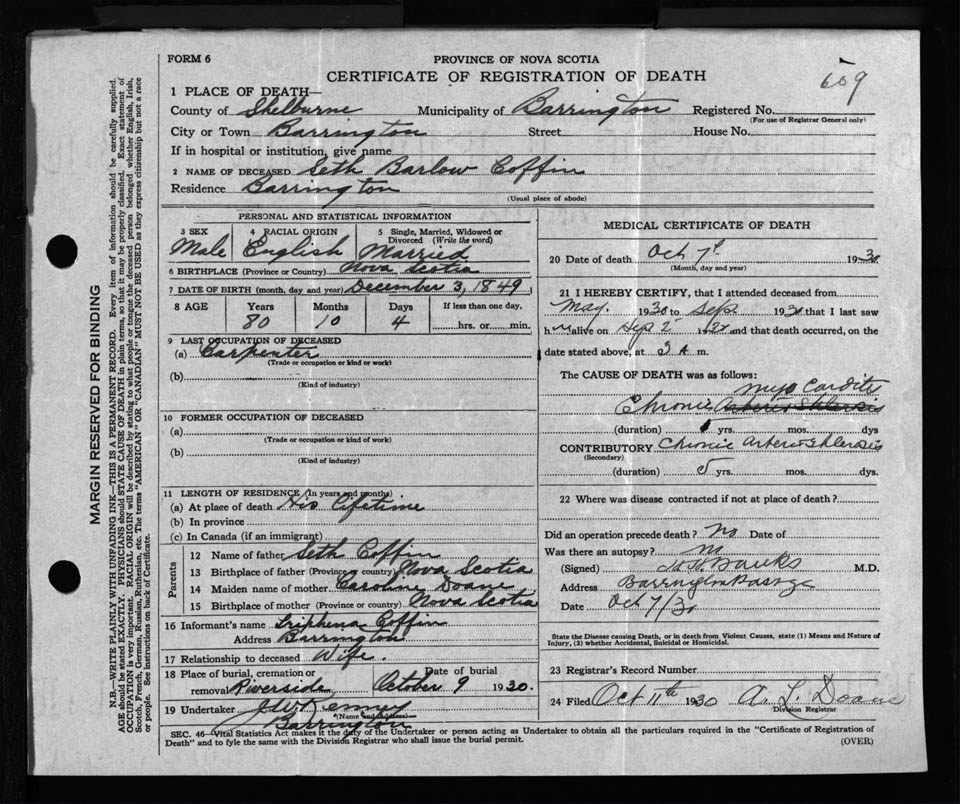 609
FORM 6
PROVINCE OF NOVA SCOTIA
CERTIFICATE OF REGISTRATION OF DEATH
1 PLACE OF DEATH—
County of Shelburne Municipality of Barrington Registered No.
(For use of Registrar General only)
City or Town Barrington Street House No.
If in hospital or institution, give name
2 NAME OF DECEASED Seth Barlow Coffin
Residence Barrington
(Usual place of abode)
PERSONAL AND STATISTICAL INFORMATION
3 SEX 4 RACIAL ORIGIN 5 Single, Married, Widowed or Divorced (Write the word)
Male English Married
6 BIRTHPLACE (Province or Country) Nova Scotia
7 DATE OF BIRTH (month, day and year) December 3, 1849
8 AGE Years Months Days If less than one day,
80 10 4 hrs. or min.
9 LAST OCCUPATION OF DECEASED
(a) Carpenter
(Trade or occupation or kind or work)
(b)
(Kind of industry)
10 FORMER OCCUPATION OF DECEASED
(a)
(Trade or occupation or kind of work)
(b)
(Kind of industry)
11 LENGTH OF RESIDENCE (In years and months)
(a) At place of death His Lifetime
(b) In province
(c) In Canada (if an immigrant)
Parents
12 Name of father Seth Coffin
13 Birthplace of father (Province or country) Nova Scotia
14 Maiden name of mother Caroline Doane
15 Birthplace of mother (Province or country) Nova Scotia
16 Informant's name Triphena Coffin
Address Barrington
17 Relationship to deceased Wife.
18 Place of burial, cremation or Date of burial
removal Riverside October 9 1930.
19 Undertaker J W Kenney
(Name and address)
Barrington
MEDICAL CERTIFICATE OF DEATH
20 Date of death Oct 7 1930
(Month, day and year)
21 I HEREBY CERTIFY, that I attended deceased from
May 1930 to Sept 1930 that I last saw
h alive on Sep 2 and that death occurred, on the
date stated above, at 3 A m.
The CAUSE OF DEATH was as follows:
Myo Carditis
Chronic Arterio Sklerosis
(duration) yrs. mos. dys
CONTRIBUTORY Chronic Arterio Sklerosis
(Secondary)
(duration) 5 yrs. mos. dys.
22 Where was disease contracted if not at place of death?
Did an operation precede death? No Date of
Was there an autopsy? No
(Signed) Banks M.D.
Address Barrington Passage
Date Oct 7/30
State the Disease causing Death, or in death from Violent Causes, state (1) Means and Nature of
Injury, (2) whether Accidental, Suicidal or Homicidal.
23 Registrar's Record Number
24 Filed Oct 11th 1930 A. L. Doane
Division Registrar
SEC. 46—Vital Statistics Act makes it the duty of the Undertaker or person acting as Undertaker to obtain all the particulars required in the "Certificate of Registration of
Death" and to fyle the same with the Division Registrar who shall issue the burial permit.
(OVER)
MARGIN RESERVED FOR BINDING
N.B.—WRITE PLAINLY WITH UNFADING INK—THIS IS A PERMANENT RECORD. Every item of information should be carefully supplied.
AGE should be stated EXACTLY. PHYSICIANS should STATE CAUSE OF DEATH in plain terms, so that it may be properly classified. Exact statement of
OCCUPATION is very important. RACIAL ORIGIN will be described by stating to what people or tongue the deceased person belonged whether English, Irish,
Scotch, French, German, Russian, Ruthenian, etc. The terms "AMERICAN" or "CANADIAN" MUST NOT BE USED as they express citizenship but not a race
or people. See instructions on back of Certificate.